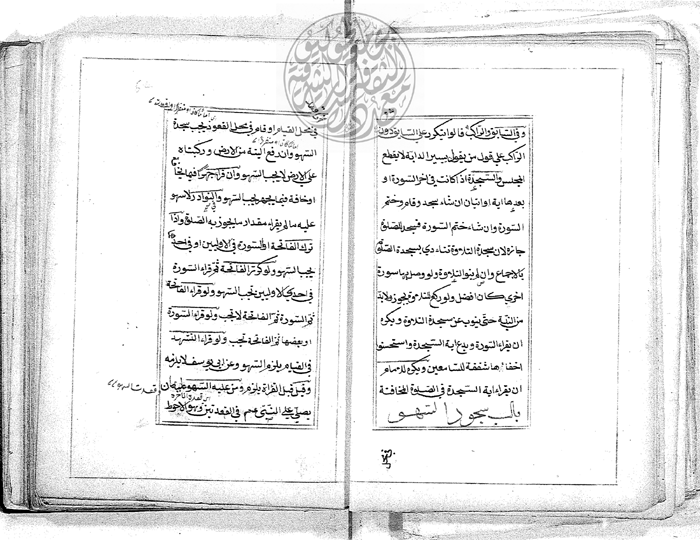 وفي السابق والراكب قالوا تتكرر على السابق دون
الراكب على قول من يقول بسير الدابة لا يقطع
المجلس والسجدة اذا كانت في اخر السورة او
بعدها اية او ايتان ان شاء سجد وقام وختم
السورة وان شاء ختم السورة فيسجد للصلوة
جاز لان سجدة التلاوة تتادي بسجدة الصلوة
بالاجماع وان لم ينو التلاوة ولو وصل بها سورة
اخري كان افضل ولو ركع للتلاوة يجوز ولا بد
من النية حتى ينوب عن سجدة التلاوة ويكره
ان يقراء السورة ويدع اية السجدة واستحسنوا
اخفاءها شفقة للسامعين ويكره للامام
ان يقراء اية السجدة في الصلوة المخافتة
باب سجود السهو
في محل القيام او قام في محل القعود يجب سجدة
السهو وان رفع اليته من الارض وركبتاه
على الارض لا يجب السهو وان قرا جهرا فيما يخافت
او خافت فيما يجهر يجب السهو والنوادر لا سهو
عليه ما لم يقراء مقدار ما يجوز به الصلوة واذا
ترك الفاتحة او السورة في الاوليين او في احد
يجب السهو ولو كرر الفاتحة ثم قراء السورة
في احدى الاوليين يجب السهو ولو قراء الفاتحة
ثم السورة ثم الفاتحة لا يجب ولو قراء السورة
او بعضها ثم الفاتحة يجب ولو قراء التشهد
في القيام يلزم السهو وعن ابي يوسف لا يلزمه
وقيل قبل القراة يلزم ومن عليه السهو
يصلي على النبي عم في القعدتين وهو الاحوط